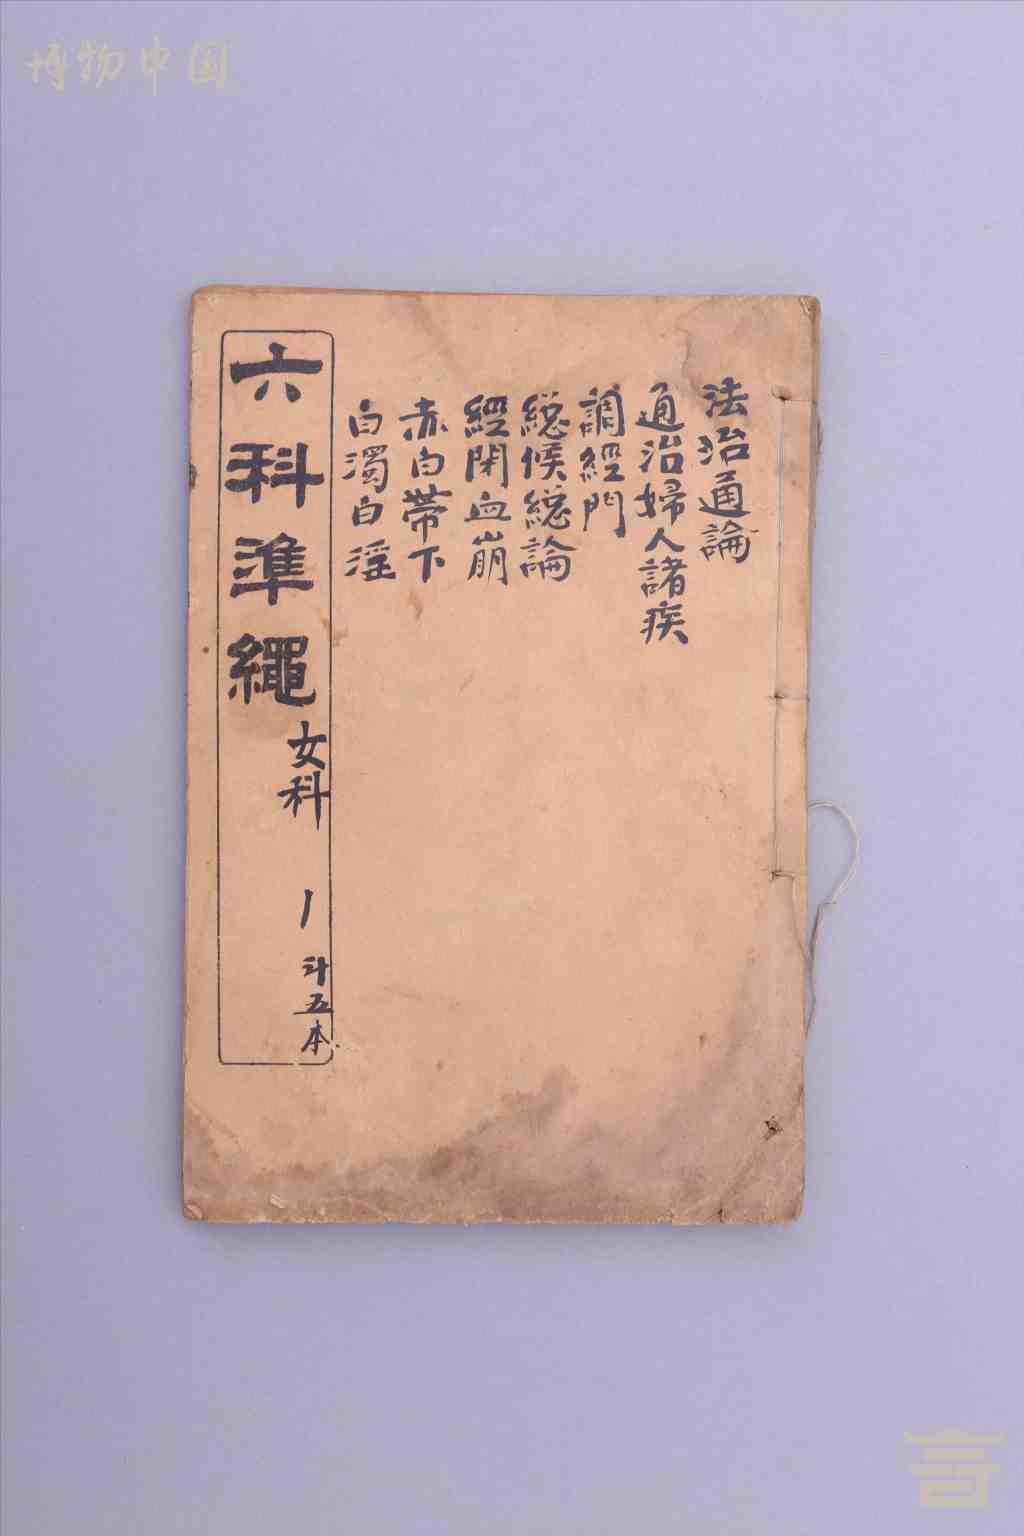 博物中国
法治通論
通治婦人諸疾
調經門
總候總論
經閉血崩
赤白帶下
白濁白淫
六科準繩
女科
丨
廾五本
言